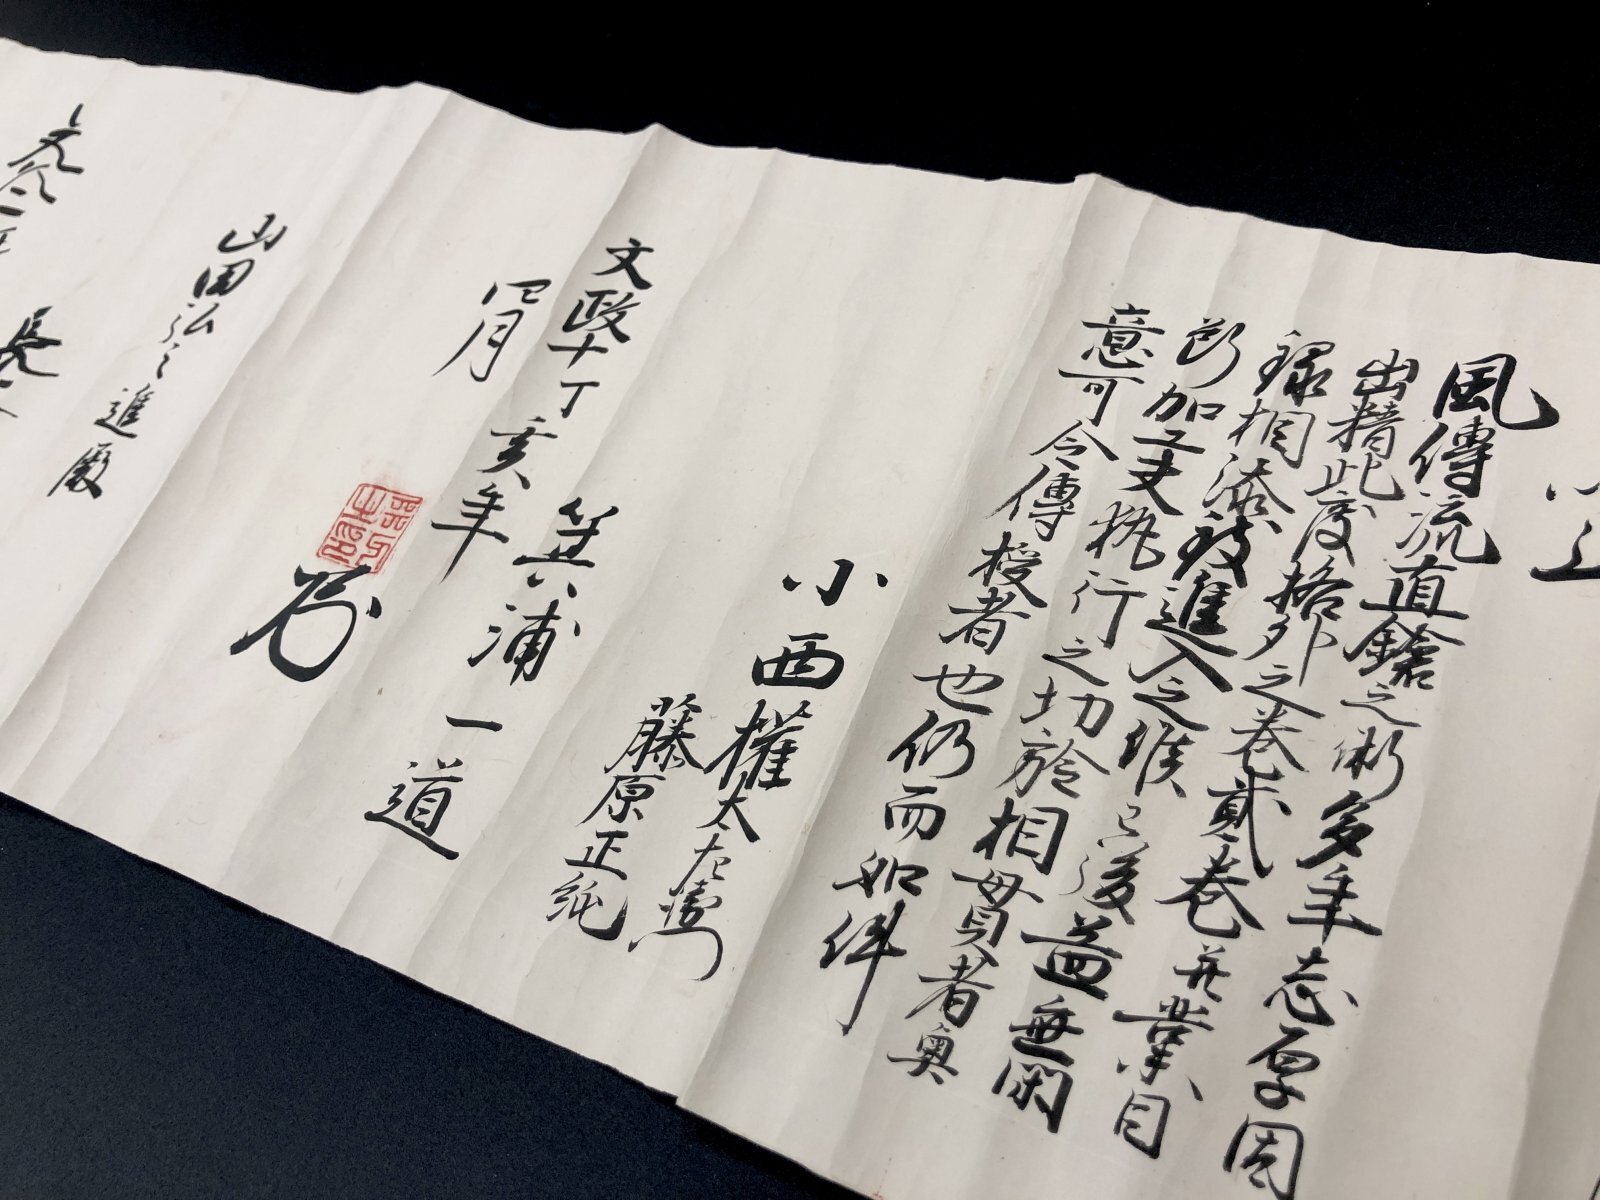 風傳流直鎗之術多年志厚因
出精此度格外之巻貳巻并業目
録相添致進入之候已後益無間
断加工夫執行之功於相貫者奥
意可令傳授者也仍而如件
小西權太左衛門
藤原正純
箕浦一道
文政十丁亥年
四月
山田弘之進殿